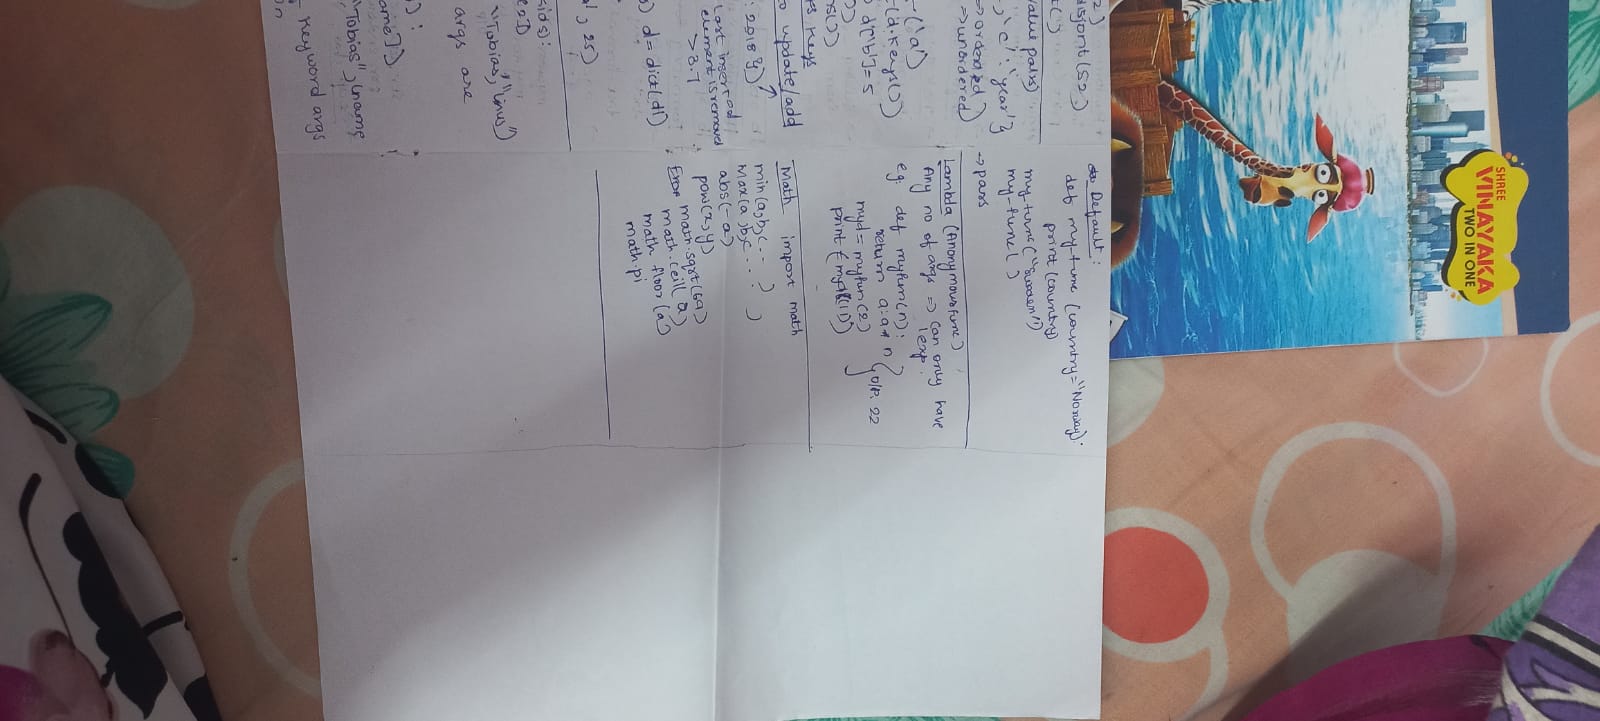 SHREE
VINAYAKA
TWO IN ONE
2)
disjoint(s2)
t()
value pairs)
, 'c': 'year'}
=> ordered
=> unordered
-('a')
t(d.keys())
d['b']=5
))
ms())
es keys
to update/add
: 2018})
Last inserted
element is removed
>3.7
) d = dict(d1)
', 25)
kids):
e2])
"Tobias", "Linus")
args are
):
ame"])
"Tobias", lname
Keyword args
on
Default:
def my-func (country="Norway):
print (country)
my-func ("Sweden")
my-func()
→ pass
Lambda (Anonymous func)
Any no of args => can only have
1 exp.
eg: def myfun(n):
return a:a* n
myd= myfun(2)
print (myd(11))
O/P. 22
Math import math
min(a,b,c.. )
Max(a,b,c.. )
abs(-a)
pow(x,y)
math.sqrt(69)
math.ceil(a)
math floor(a)
math.pi